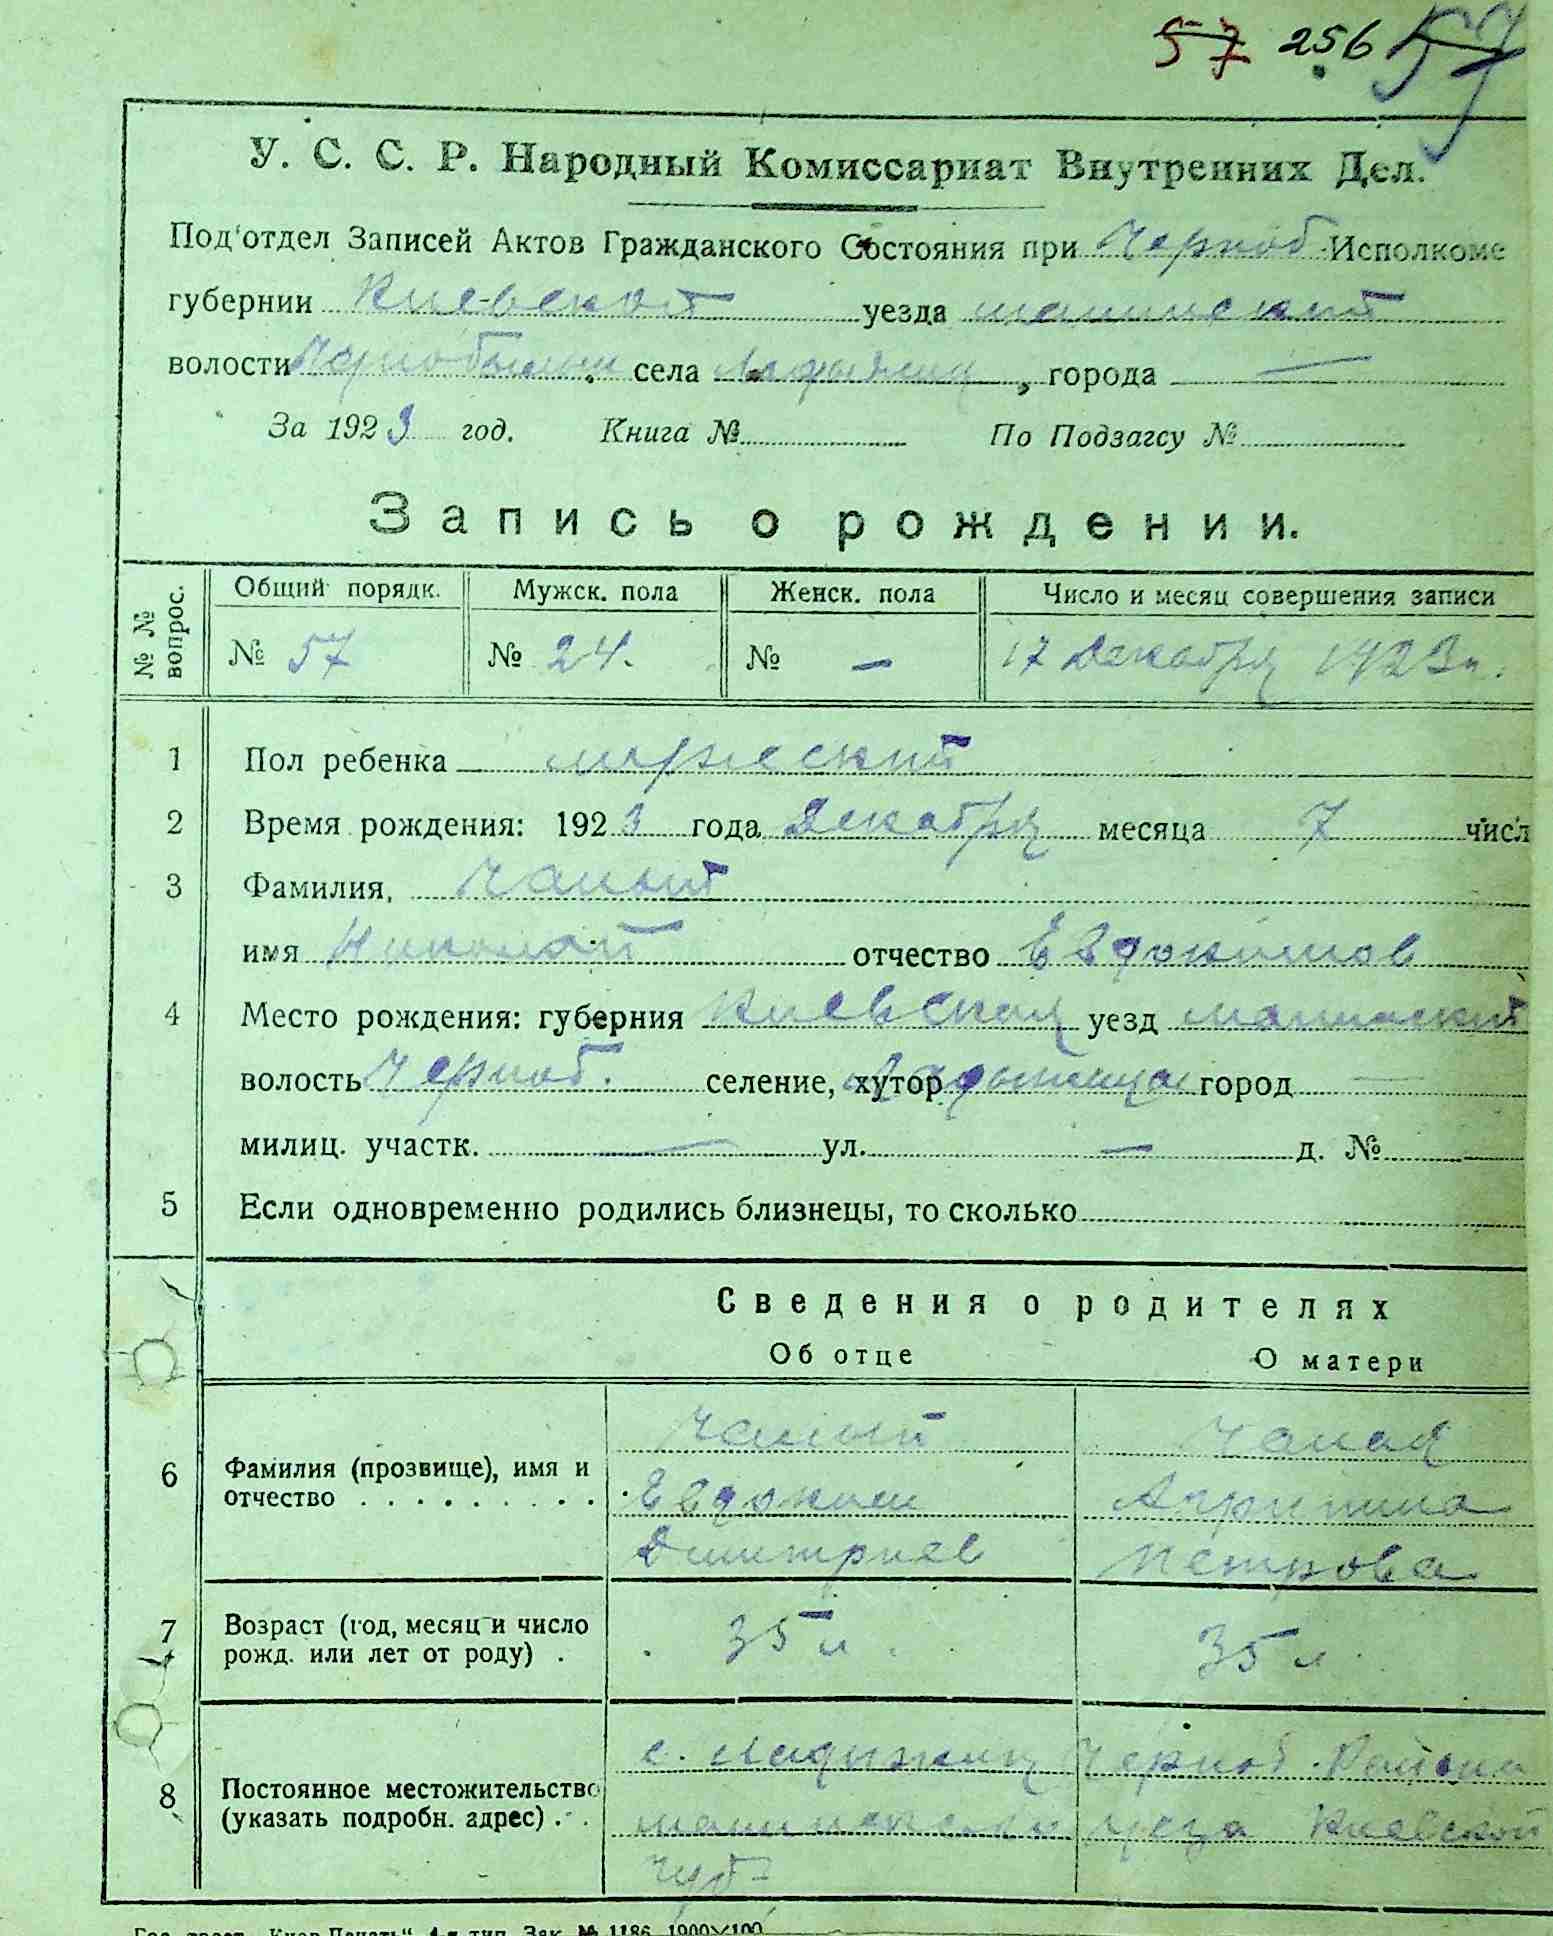 57 256 57
У. С. С. Р. Народный Комиссариат Внутренних Дел.
Под'отдел Записей Актов Гражданского Состояния при Черноб. Исполкоме
губернии Киевской уезда
волости села города —
За 1923 год. Книга № По Подзагсу №
Запись о рождении.
№ № вопрос. Общий порядк. Мужск. пола Женск. пола Число и месяц совершения записи
№ 57 № 24. № — 17 Декабря 1923 г.
1 Пол ребенка мужеский
2 Время рождения: 1923 года Декабря месяца 7 числ
3 Фамилия, Чалый
имя Николай отчество Евдокимов
4 Место рождения: губерния Киевская уезд
волость Черноб. селение, хутор город —
милиц. участк. — ул. — д. №
5 Если одновременно родились близнецы, то сколько
Сведения о родителях
Об отце О матери
6 Фамилия (прозвище), имя и отчество Чалый Чалая
Евдоким
Дмитриев Петрова
7 Возраст (год, месяц и число рожд. или лет от роду) . 35 л. 35 л.
8 Постоянное местожительство (указать подробн. адрес) . . с. Черноб. Района
уезда Киевской
губ-
Зак. № 1186. 1900×100